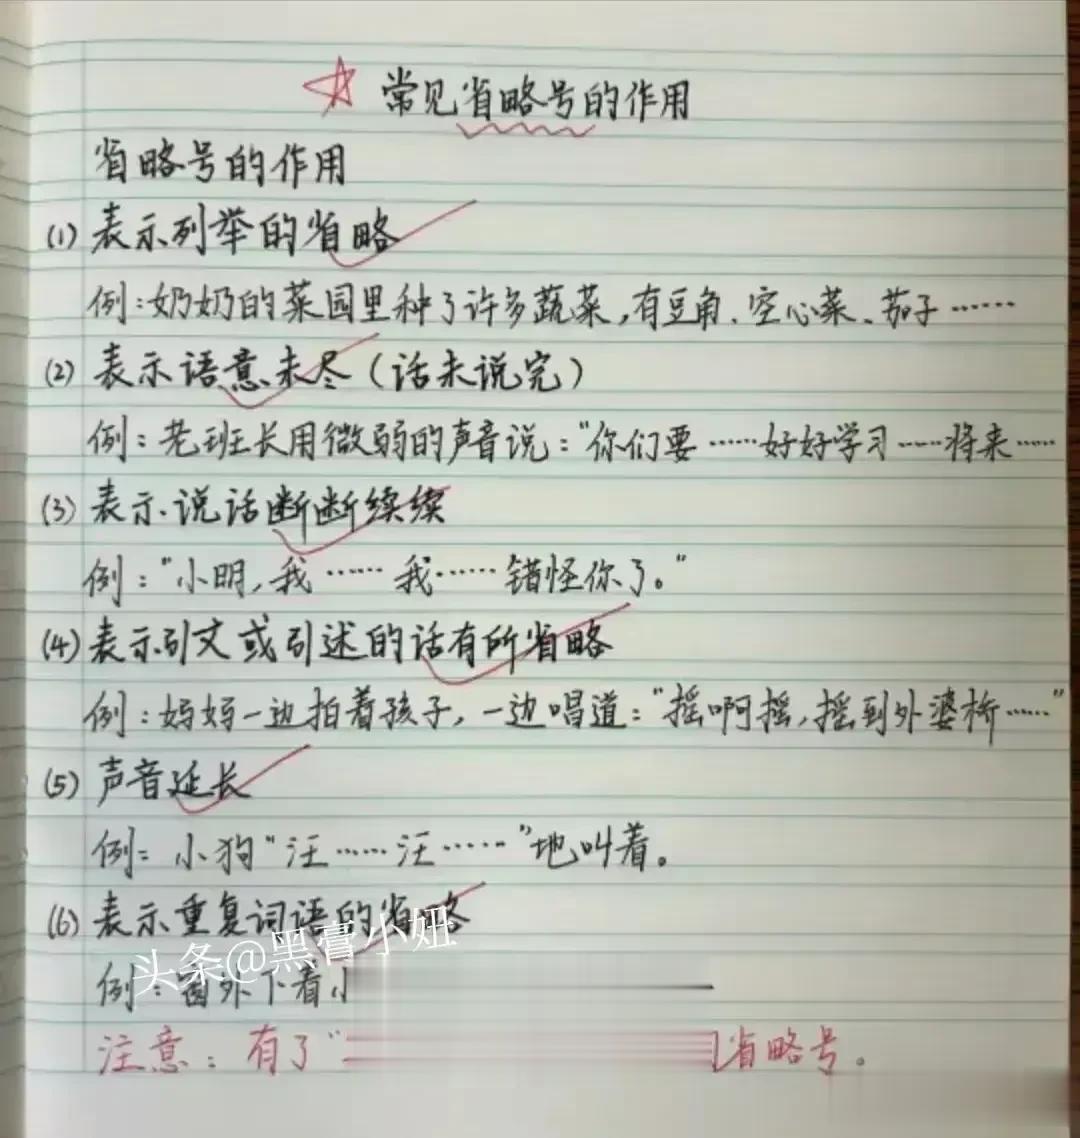 常见省略号的作用
省略号的作用
(1) 表示列举的省略
例:奶奶的菜园里种了许多蔬菜,有豆角、空心菜、茄子……
(2) 表示语意未尽(话未说完)
例:老班长用微弱的声音说:"你们要……好好学习……将来……
(3) 表示说话断断续续
例:"小明,我……我……错怪你了。"
(4) 表示引文或引述的话有所省略
例:妈妈一边拍着孩子,一边唱道:"摇啊摇,摇到外婆桥……"
(5) 声音延长
例:小狗"汪……汪……"地叫着。
(6) 表示重复词语的省略
头条@黑膏小妞
例:窗外下着
注意:有了" 省略号。